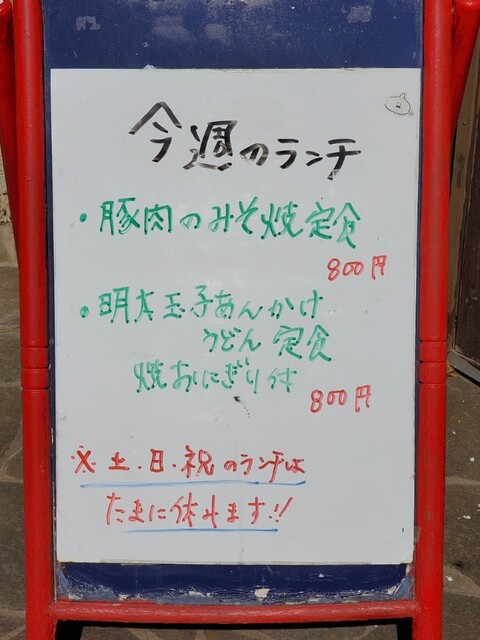 今週のランチ
・豚肉のみそ焼定食
800円
・明太玉子あんかけ
うどん定食
焼おにぎり付
800円
※土・日・祝のランチは
たまに休みます!!